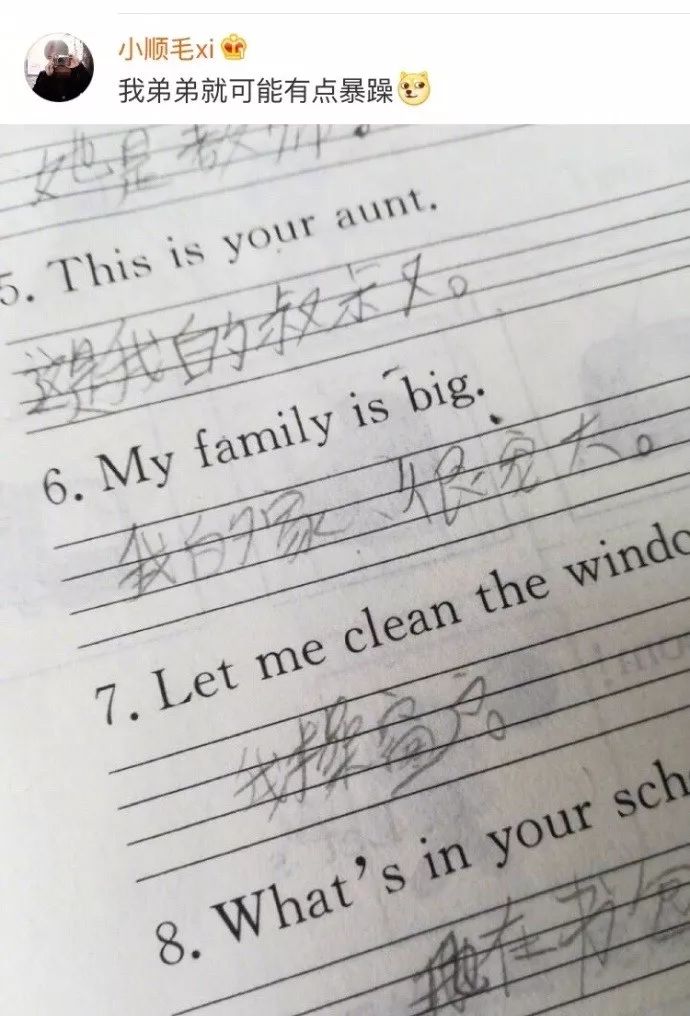 小顺毛xi
我弟弟就可能有点暴躁
她是教师。
5. This is your aunt.
这是我的叔叔。
6. My family is big.
我的家很宽大。
7. Let me clean the windo
我操窗户。
8. What's in your sch
在书包